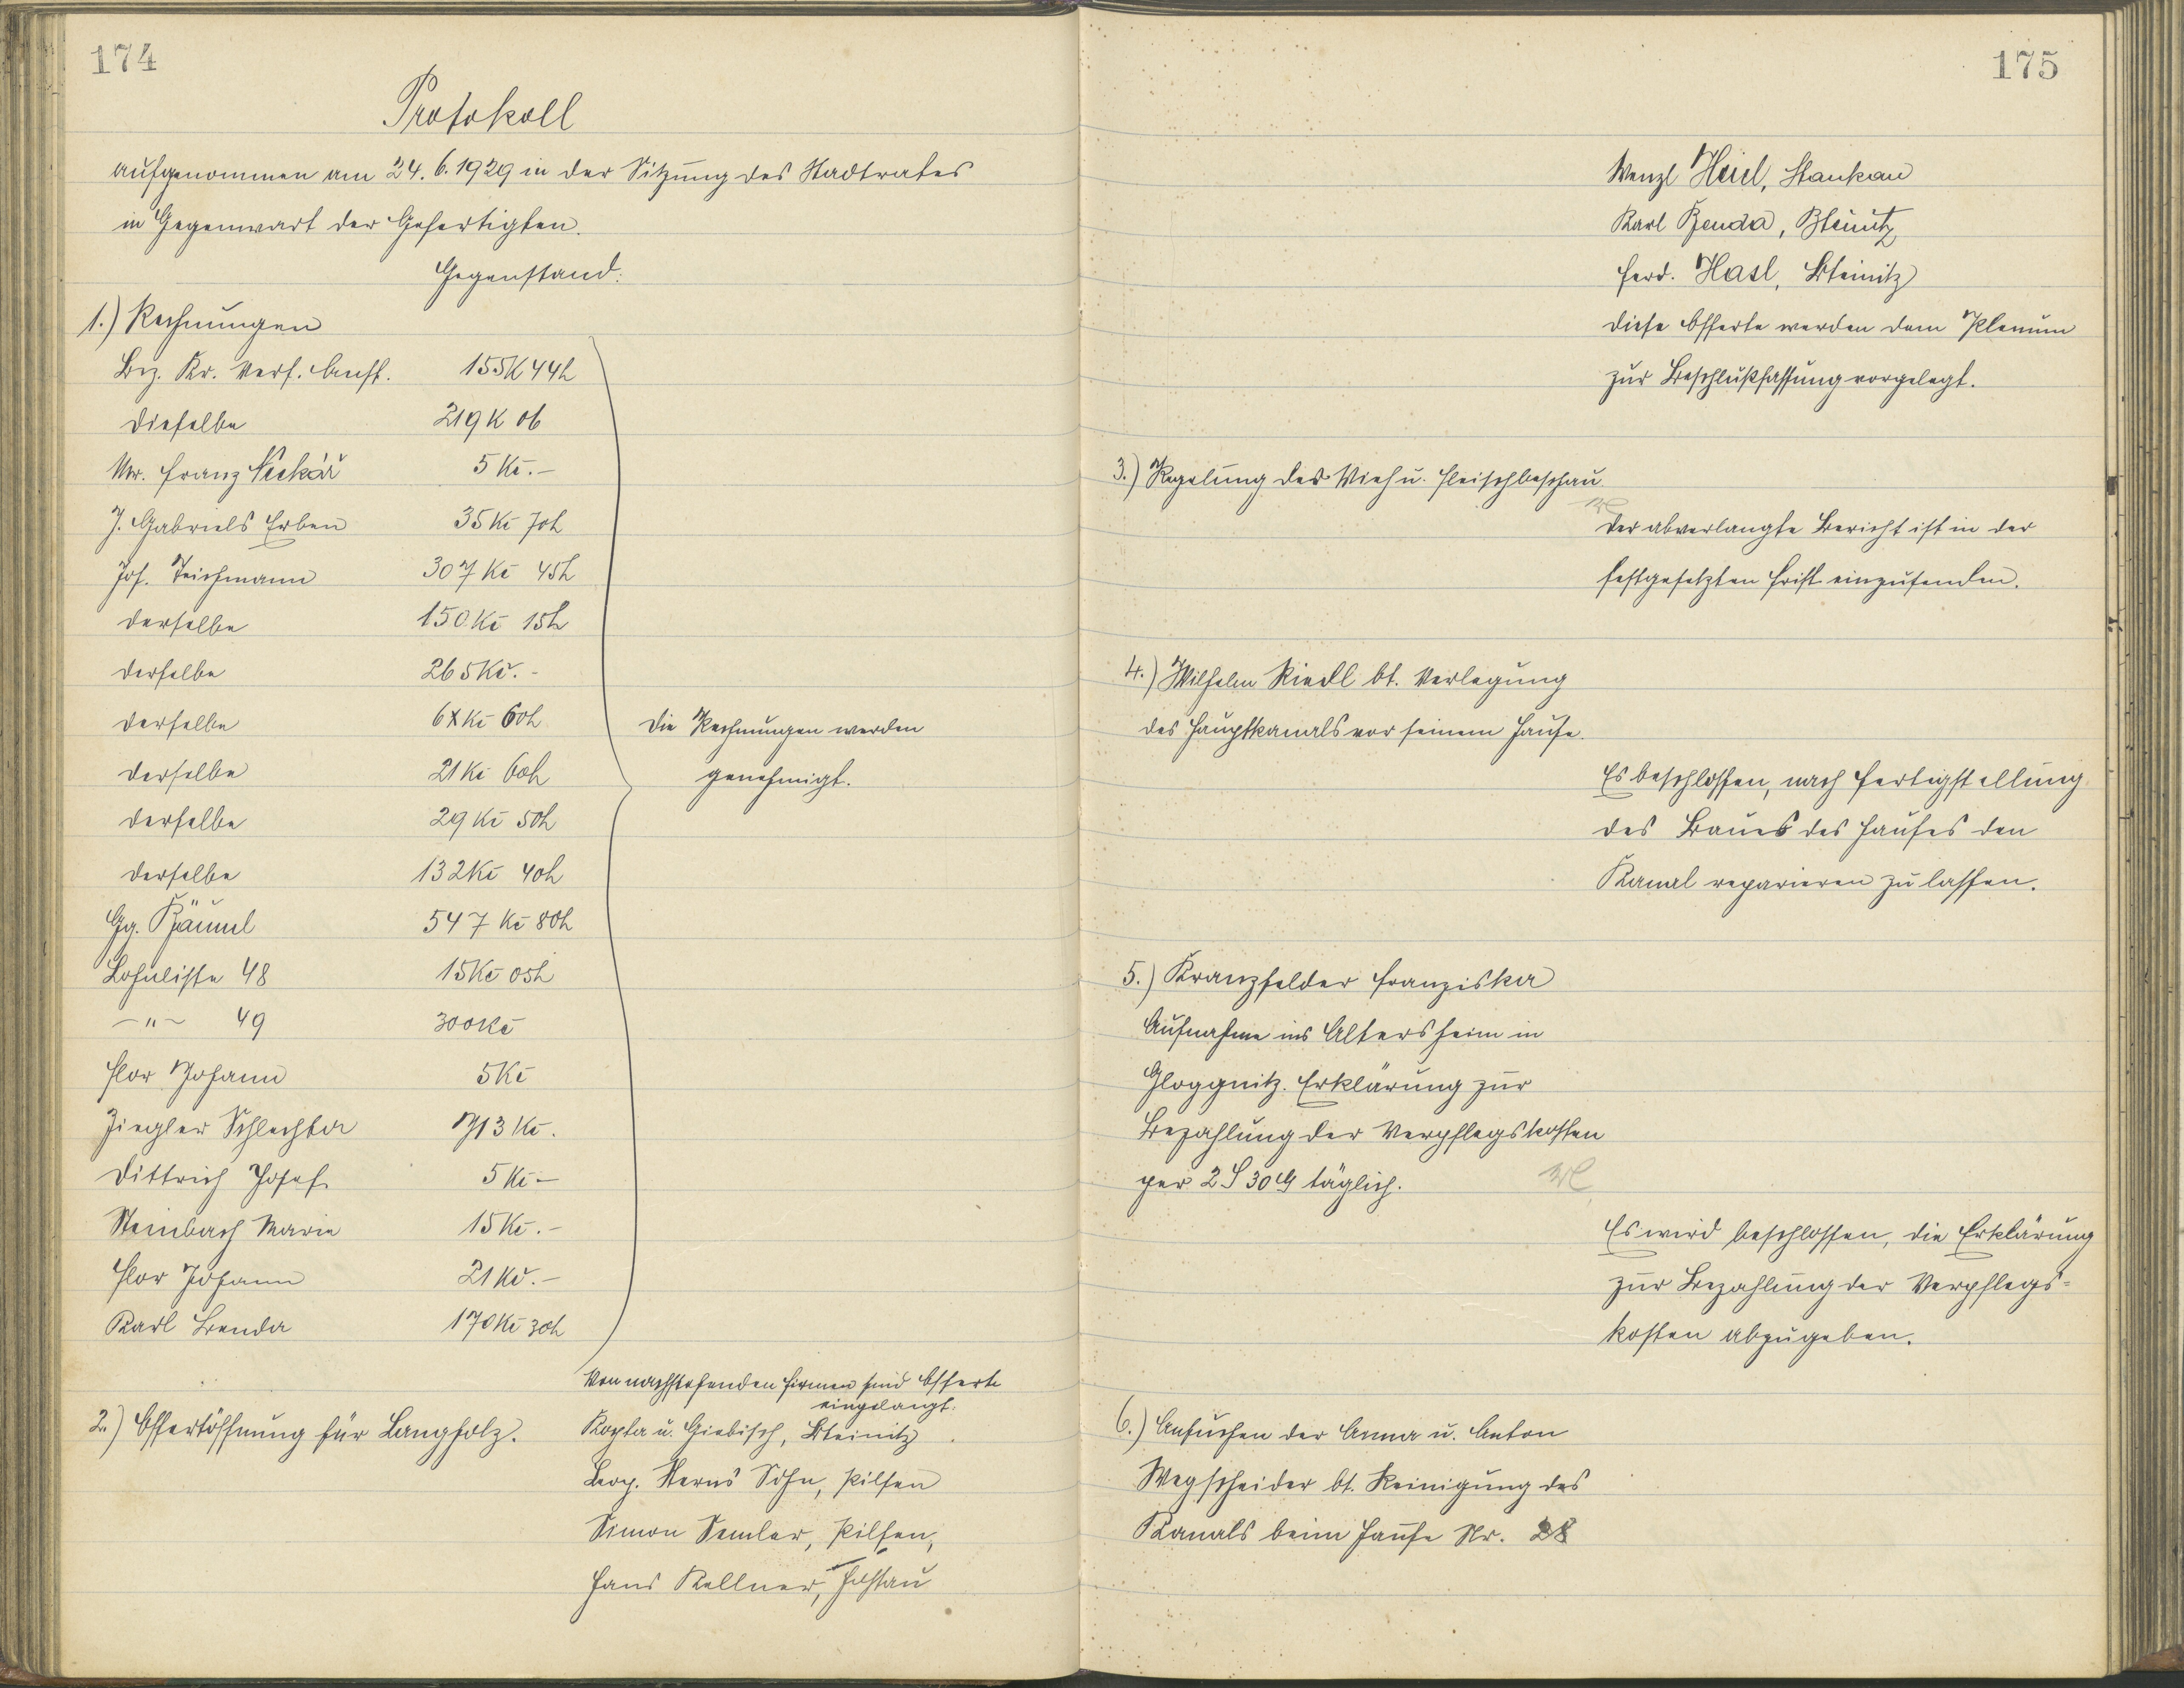 174
Protokoll
aufgenommen am 24. 6. 1929 in der Sitzung des Stadtrates
in Gegenwart der Gefertigten.
Gegenstand:
1.) Rechnungen
Bez. Kr. Vers. Anst. 155K 44h
dieselbe 219 K 06
Mr. Franz 5 Kč.-
J. Gabriels Erben 35 Kč 70h
Jos. Teichmann 307 Kč 45h
derselbe 150 Kč 15h
derselbe 265 Kč.-
derselbe Kč 60h
derselbe 21 Kč 60h
derselbe 29 Kč 50h
derselbe 132 Kč 40h
Die Rechnungen werden
genehmigt.
Gg. Bäuml 547 Kč 80h
Lohnliste 48 15 Kč 05h
-"- 49 300 Kč
Flor Johann 5 Kč
Ziegler Schlechta 713 Kč.
Dittrich Josef 5 Kč -
Steinbach Marie 15 Kč.-
Flor Johann 21 Kč.-
Karl Benda 170 Kč 30h
2.) Offertöffnung für Langholz.
Von nachstehenden Firmen sind Offerte
eingelangt:
Kopta u. Giebisch, Bteinitz
Leop. Sterns Sohn, Pilsen
Simon Semler, Pilsen,
Hans Kellner, Hostau
175
Wenzl Heidl, Stankau
Karl Benda, Bteinitz
Ferd. Hasl, Bteinitz
Diese Offerte werden dem Plenum
zur Beschlußfassung vorgelegt.
3.) Regelung des Vieh u. Fleischbeschau
Der abverlangte Bericht ist in der
festgesetzten Frist einzusenden.
4.) Wilhelm Riedl bt. Verlegung
des Hauptkanals vor seinem Hause.
Es beschlossen, nach Fertigstellung
des Baues des Hauses den
Kanal reparieren zu lassen.
5.) Kranzfelder Franziska
Aufnahme ins Altersheim in
Gloggnitz. Erklärung zur
Bezahlung der Verpflegskosten
per 2 S 30 G täglich.
Es wird beschlossen, die Erklärung
zur Bezahlung der Verpflegs=
kosten abzugeben.
6.) Ansuchen der Anna u. Anton
Wegscheider bt. Reinigung des
Kanals beim Hause Nr. 28